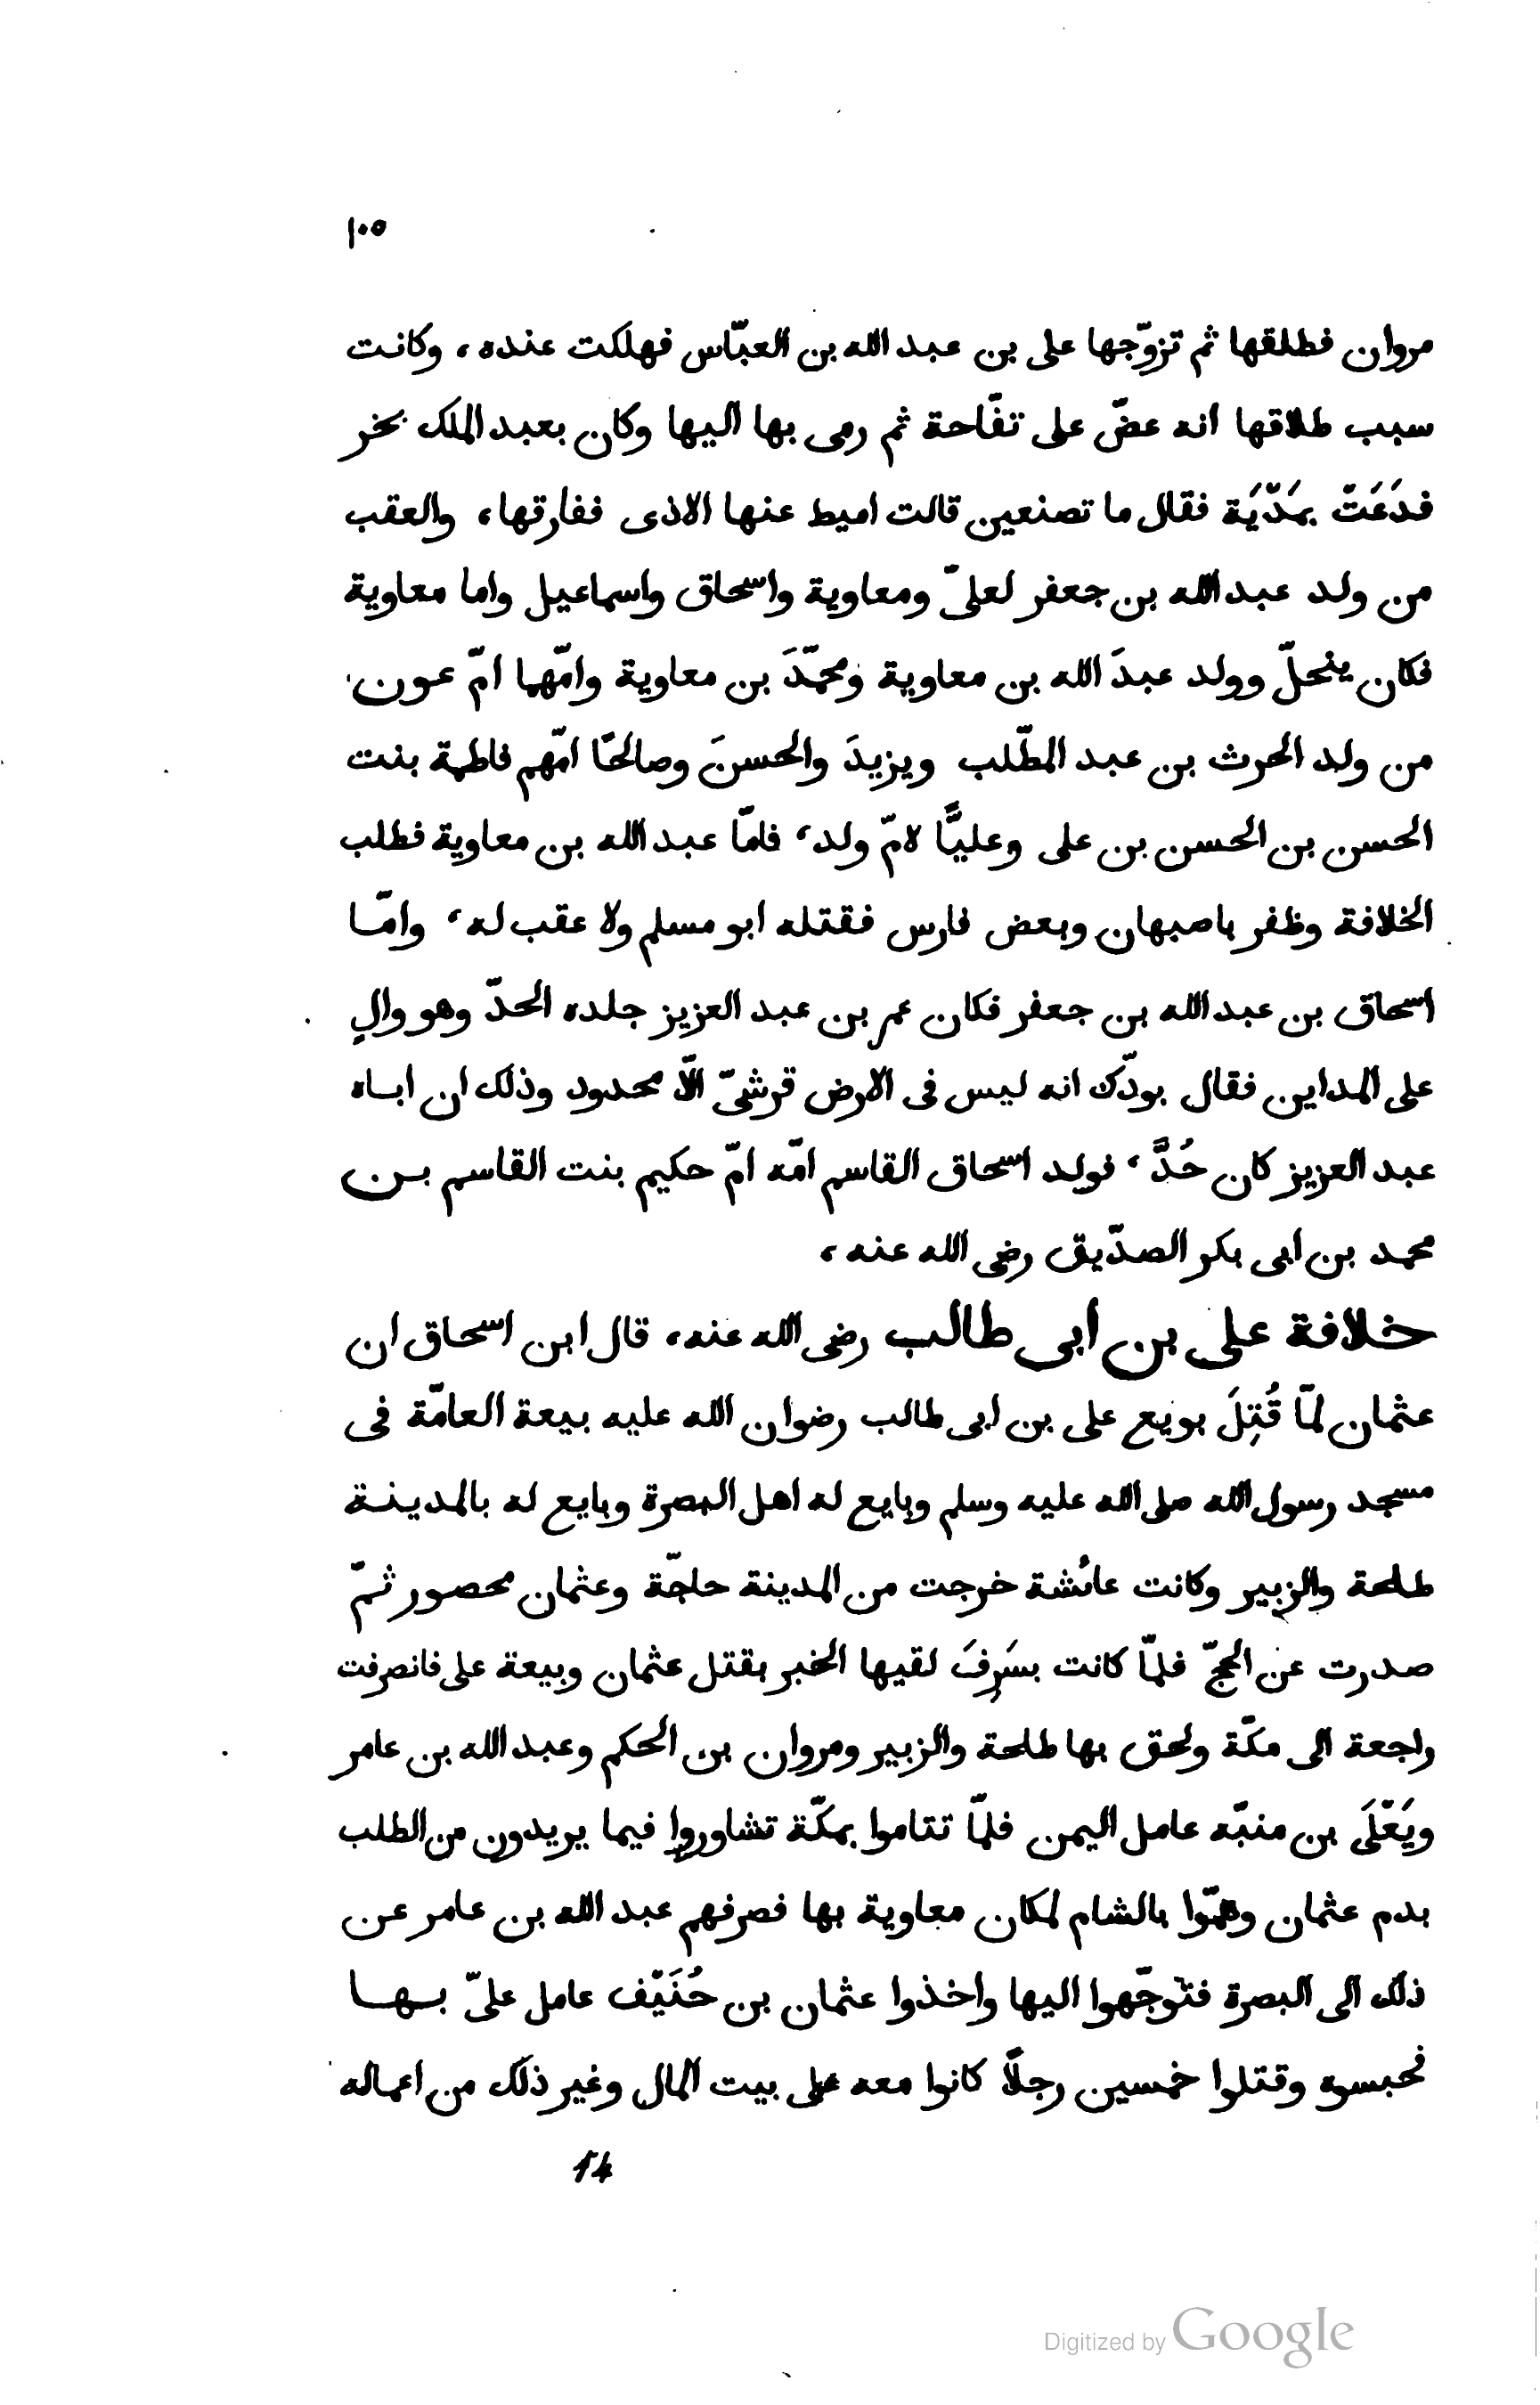 ١٠٥
مروان فطلقها ثم تزوّجها على بن عبد الله بن العبّاس فهلكت عنده، وكانت
سبب طلاقها انه عضّ على تفّاحة ثم رمى بها اليها وكان بعبد الملك بخر
فدَعَتْ بمَدْيَة فقال ما تصنعين قالت اميط عنها الاذى ففارقها، والعقب
من ولد عبد الله بن جعفر لعلىّ ومعاوية واسحاق واسماعيل واما معاوية
فكان ينحلّ وولد عبدَ الله بن معاوية ومحمّدَ بن معاوية وامّهما امّ عون
من ولد الحرث بن عبد المطّلب ويزيدَ والحسنَ وصالحًا امّهم فاطمة بنت
الحسن بن الحسن بن على وعليًّا لامّ ولد، فامّا عبد الله بن معاوية فطلب
الخلافة وظفر باصبهان وبعض فارس فقتله ابو مسلم ولا عقب له، وامّا
اسحاق بن عبد الله بن جعفر فكان عمر بن عبد العزيز جلده الحدّ وهو والٍ
على المداين فقال بودّك انه ليس فى الارض قرشىّ الّا محدود وذلك ان اباه
عبد العزيز كان حُدَّ، فولد اسحاق القاسم امّه امّ حكيم بنت القاسم بن
محمد بن ابى بكر الصدّيق رضى الله عنه،
خلافة على بن أبى طالب رضى الله عنه، قال ابن اسحاق ان
عثمان لمّا قُتِلَ بويع على بن ابى طالب رضوان الله عليه بيعة العامّة فى
مسجد رسول الله صلى الله عليه وسلم وبايع له اهل البصرة وبايع له بالمدينة
طلحة والزبير وكانت عائشة خرجت من المدينة حاجّة وعثمان محصور ثمّ
صدرت عن الحجّ فلمّا كانت بسَرِفَ لقيها الخبر بقتل عثمان وبيعة على فانصرفت
راجعة الى مكّة ولحق بها طلحة والزبير ومروان بن الحكم وعبد الله بن عامر
ويَعْلَى بن منبّه عامل اليمن فلمّا تتاموا بمكّة تشاوروا فيما يريدون من الطلب
بدم عثمان وهمّوا بالشام لمكان معاوية بها فصرفهم عبد الله بن عامر عن
ذلك الى البصرة فتوجّهوا اليها واخذوا عثمان بن حُنَيْف عامل علىّ بها
فحبسوه وقتلوا خمسين رجلًا كانوا معه على بيت المال وغير ذلك من اعماله
14
Digitized by Google